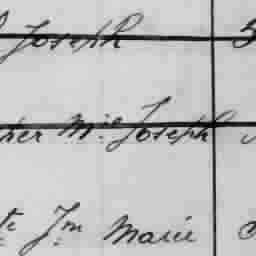 Joseph 5
ier Mie Joseph
te Jm Marie